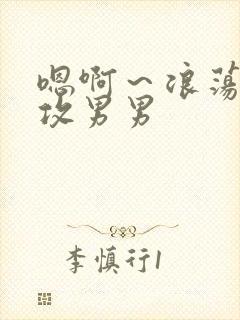 嗯啊~浪荡
攻男男
李慎行1